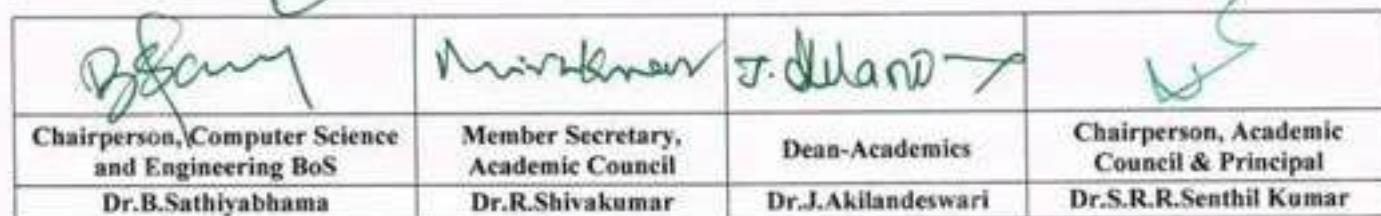 Chairperson, Computer Science
and Engineering BoS
Member Secretary,
Academic Council
Dean-Academics
Chairperson, Academic
Council & Principal
Dr.B.Sathiyabhama
Dr.R.Shivakumar
Dr.J.Akilandeswari
Dr.S.R.R.Senthil Kumar